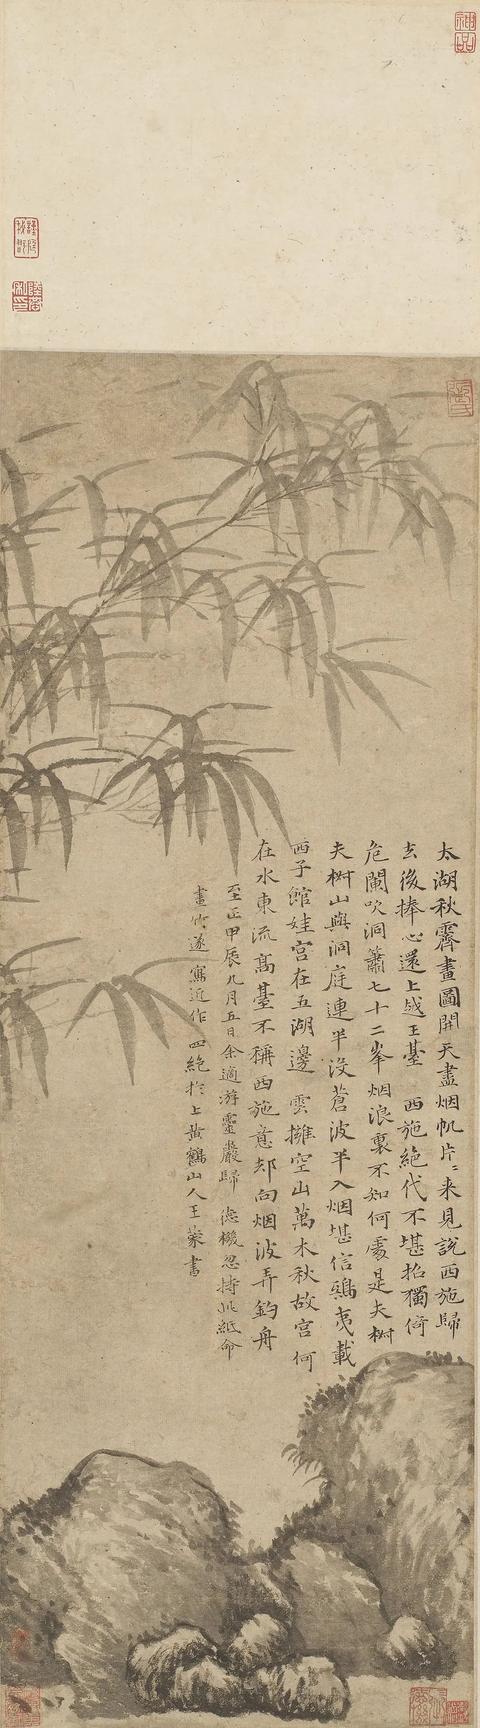 神品
太湖秋霽畫圖開天盡烟帆片〻来見說西施歸
去後捧心還上越王臺　西施絕代不堪招獨倚
危闌吹洞簫七十二峯烟浪裏不知何處是夫椒
夫椒山與洞庭連半沒蒼波半入烟堪信鴟夷載
西子館娃宮在五湖邊　雲擁空山萬木秋故宮何
在水東流高臺不稱西施意却向烟波弄釣舟
至正甲辰九月五日余適游靈巖歸　德機忽持此紙命
畫竹遂寫近作四絕於上黃鶴山人王蒙書